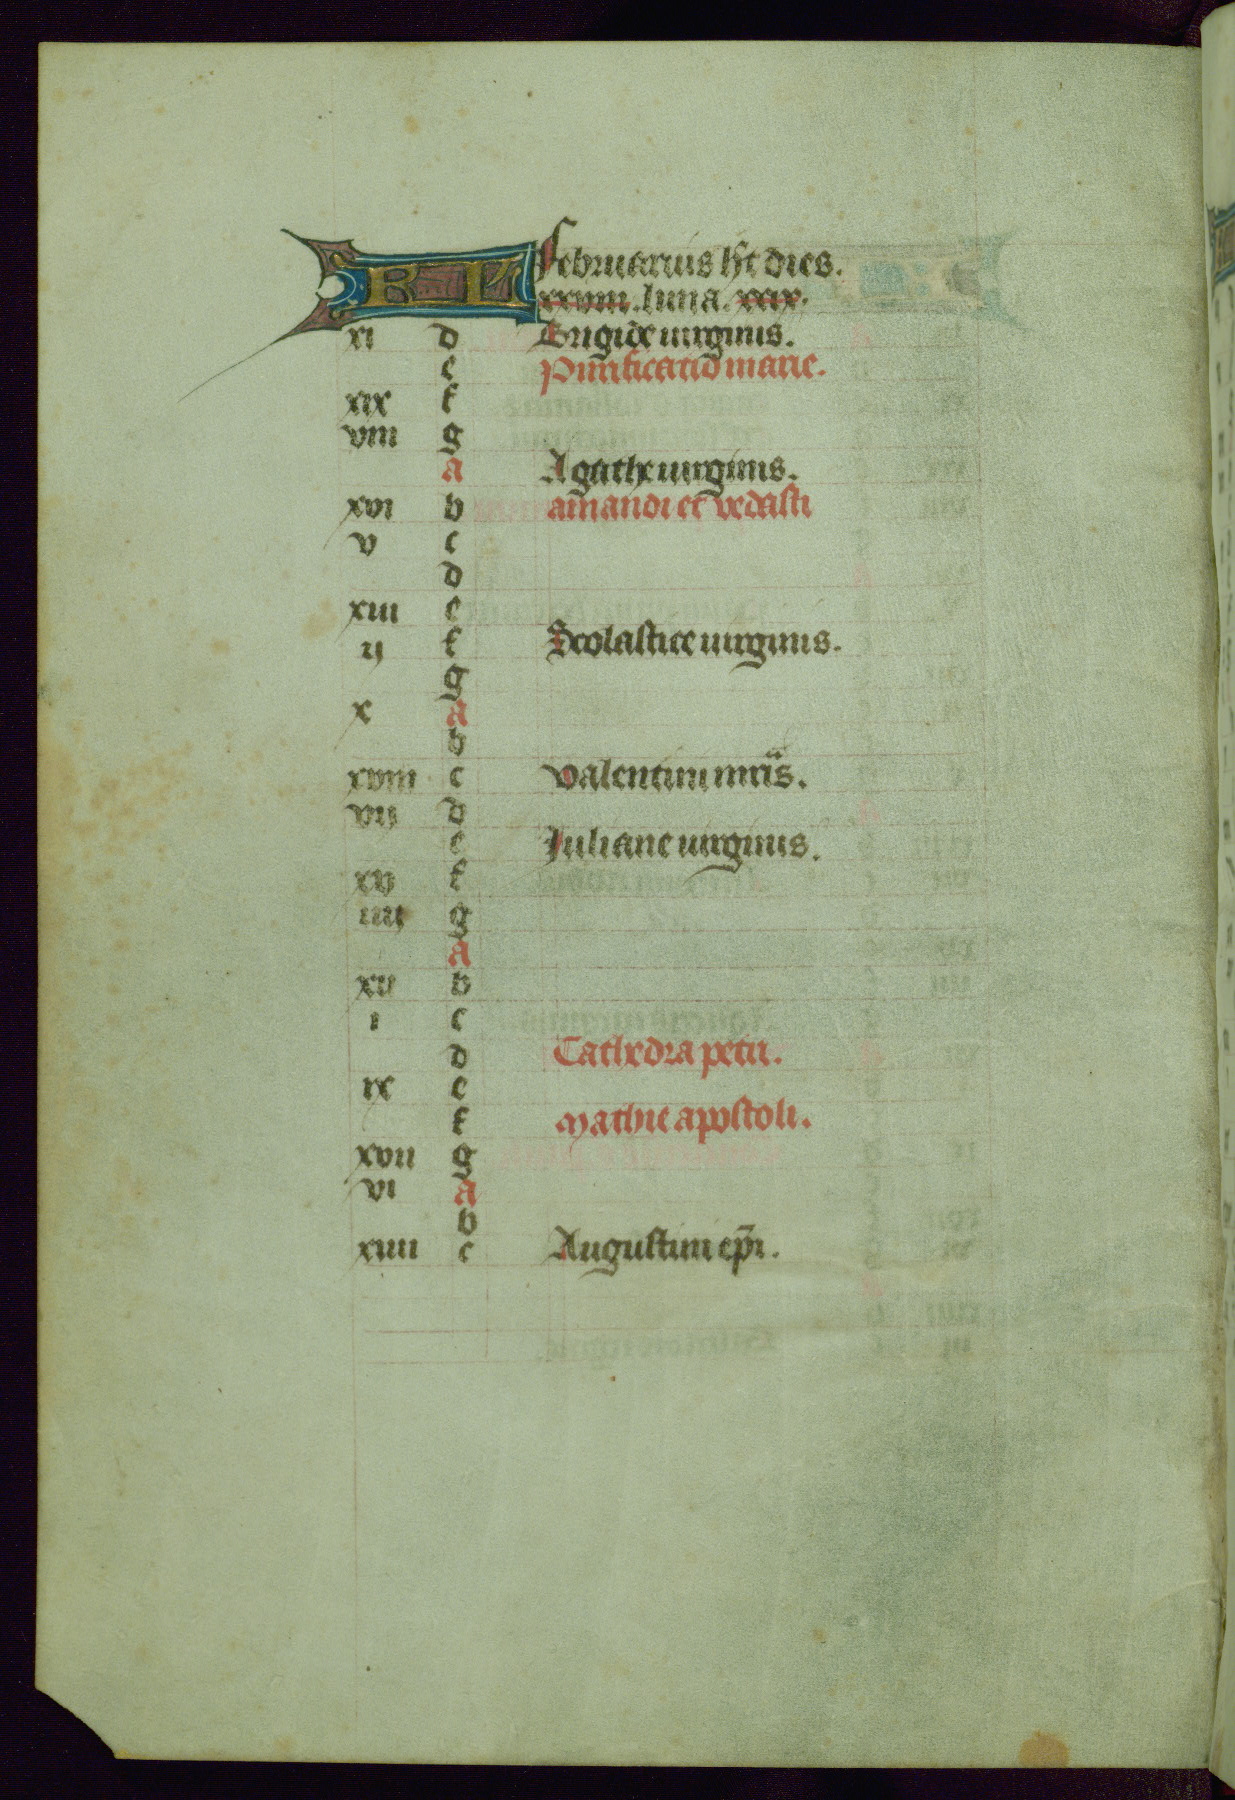 KL Februarius h't dies.
xxviii. luna. xxix.
xi d Brigide uirginis.
e Purificatio marie.
xix f
viii g
a Agathe uirginis.
xvi b amandi et vedasti
v c
d
xiii e
ij f Scolastice uirginis.
g
x a
b
xviii c Valentini mr̄is.
vij d
e Juliane uirginis.
xv f
iiii g
a
xij b
i c
d Cathedra petri.
ix e
f Mathie apostoli.
xvii g
vi a
b
xiiii c Augustini ep̄i.